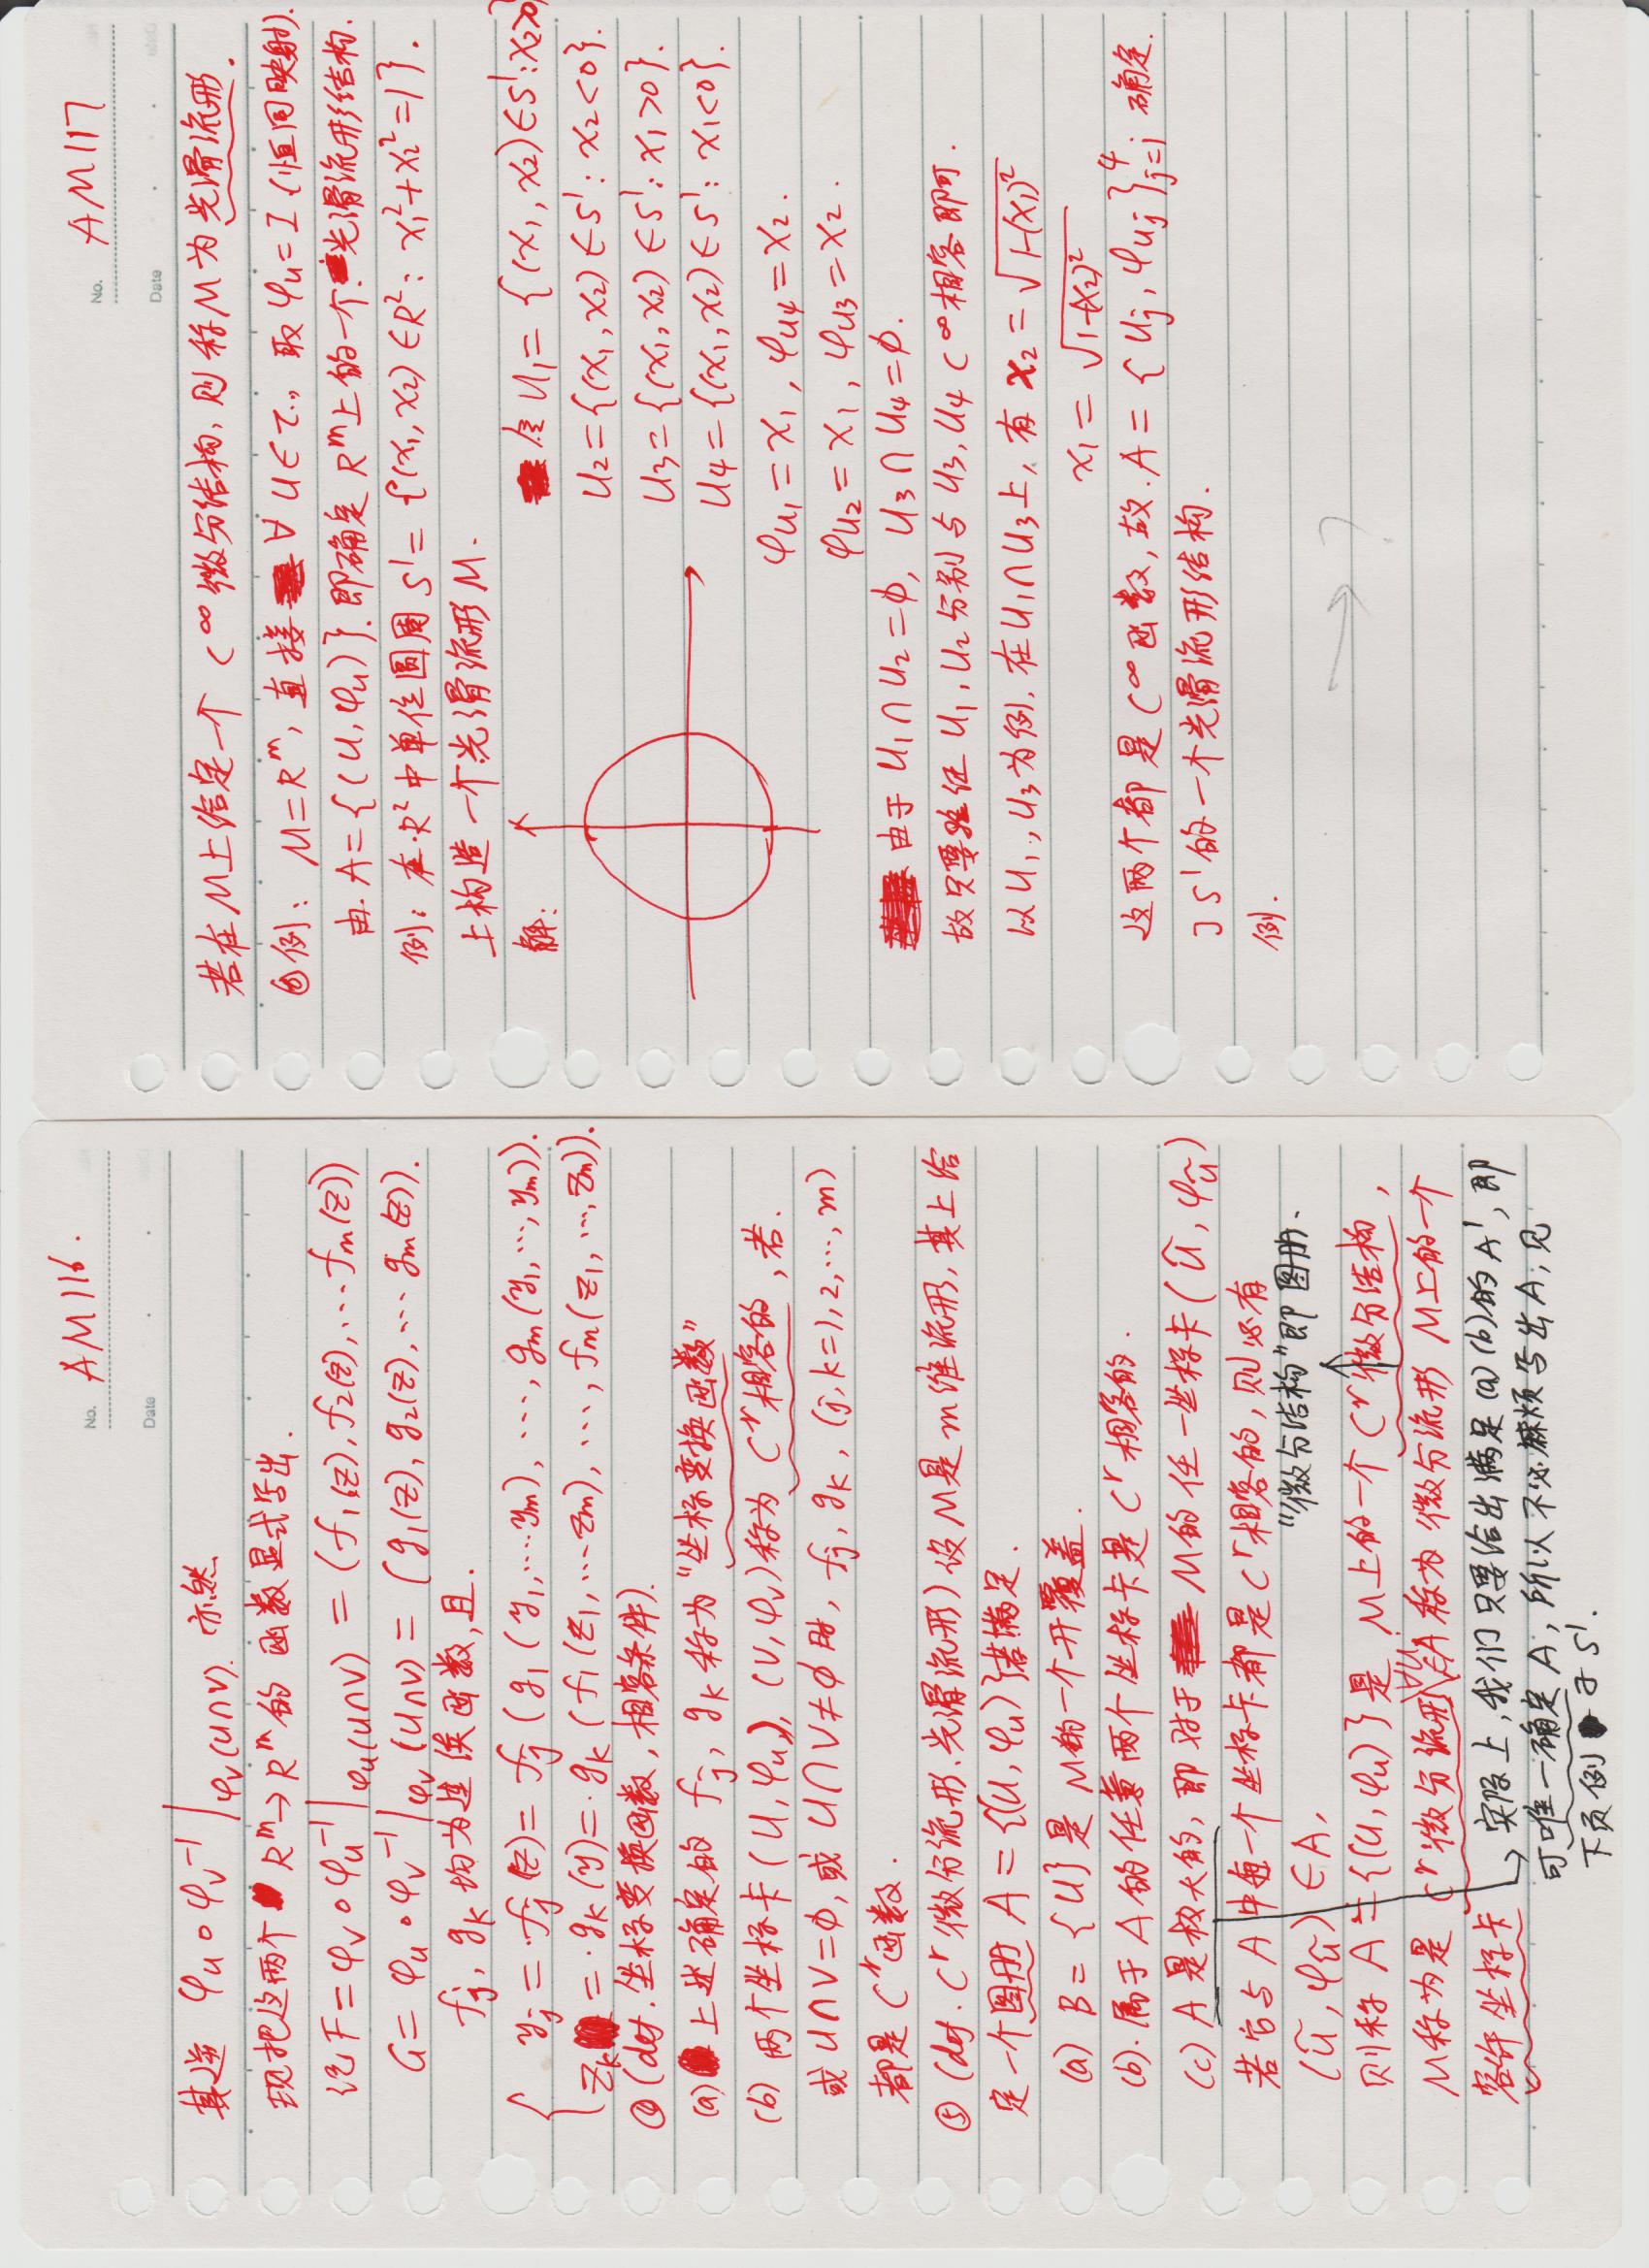 No. AM116.
Date
其逆 φ_U∘φ_V^{-1}|_{φ_V(U∩V)}. 亦然
现把这两个 R^m→R^m 的 函数显式写出.
记 F=φ_V∘φ_U^{-1}|_{φ_U(U∩V)} = (f_1(z), f_2(z), ⋯ f_m(z))
G= φ_U∘φ_V^{-1}|_{φ_V(U∩V)} = (g_1(z), g_2(z), ⋯ g_m(z)).
f_j, g_k 均为连续函数,且.
y_j = f_j(z)= f_j(g_1(y_1,⋯y_m), ⋯, g_m(y_1,⋯,y_m)).
z_k = g_k(y)= g_k(f_1(z_1,⋯z_m), ⋯, f_m(z_1,⋯,z_m)).
④ (def. 坐标变换函数, 相容条件).
(a) 上述确定的 f_j, g_k 称为“坐标变换函数”
(b) 两个坐标卡 (U,φ_U), (V,φ_V) 称为 C^r相容的, 若.
或 U∩V=∅, 或 U∩V≠∅ 时, f_j, g_k, (j,k=1,2,⋯,m)
都是 C^r函数.
⑤ (def. C^r 微分流形、光滑流形) 设 M是 m 维流形, 其上给
定一个图册 A={(U,φ_U)}若满足.
(a) B={U}是 M的一个开覆盖.
(b). 属于 A 的任意两个坐标卡是 C^r 相容的.
(c) A是极大的, 即 对于 M的 任一坐标卡 (Ũ, φ_Ũ)
若它与 A 中每一个坐标卡都是 C^r相容的, 则必有
“微分结构”即图册.
(Ũ, φ_Ũ) ∈A,
则称 A={(U,φ_U)}是 M上的一个 C^r微分结构,
M称为是 C^r微分流形 ∀U∈A 称为 微分流形 M上的一个
容许坐标卡
实际上, 我们只要给出满足(a)(b)的A', 即
可唯一确定 A, 所以不必麻烦写出A, 见
下页例 于 S^1.
No. AM117
Date
若在M上给定一个 C^∞ 微分结构, 则称M为光滑流形.
⑥例: M=R^m, 直接 ∀ U∈τ., 取 φ_U=I (恒同映射).
由. A={(U,φ_U)}. 即确定 R^m上的一个光滑流形结构.
例: 在 R^2 中单位圆周 S^1={(x_1,x_2)∈R^2: x_1^2+x_2^2=1}.
上构造一个光滑流形M.
解: 令 U_1={(x_1,x_2)∈S^1:x_2>0}
U_2={(x_1,x_2)∈S^1: x_2<0}.
U_3={(x_1,x_2)∈S^1: x_1>0}.
U_4={(x_1,x_2)∈S^1: x_1<0}.
φ_{U_1}=x_1, φ_{U_4}=x_2.
φ_{U_2}=x_1, φ_{U_3}=x_2.
由于 U_1∩U_2=∅, U_3∩U_4=∅.
故只要验证 U_1, U_2分别与 U_3, U_4 C^∞相容即可.
以U_1, U_3为例. 在U_1∩U_3上, 有 x_2=√(1-(x_1)^2)
x_1=√(1-(x_2)^2)
这两个都是 C^∞函数, 故. A={U_j, φ_{U_j}}_{j=j}^4 确定.
了S^1的一个光滑流形结构.
例.
→ ?